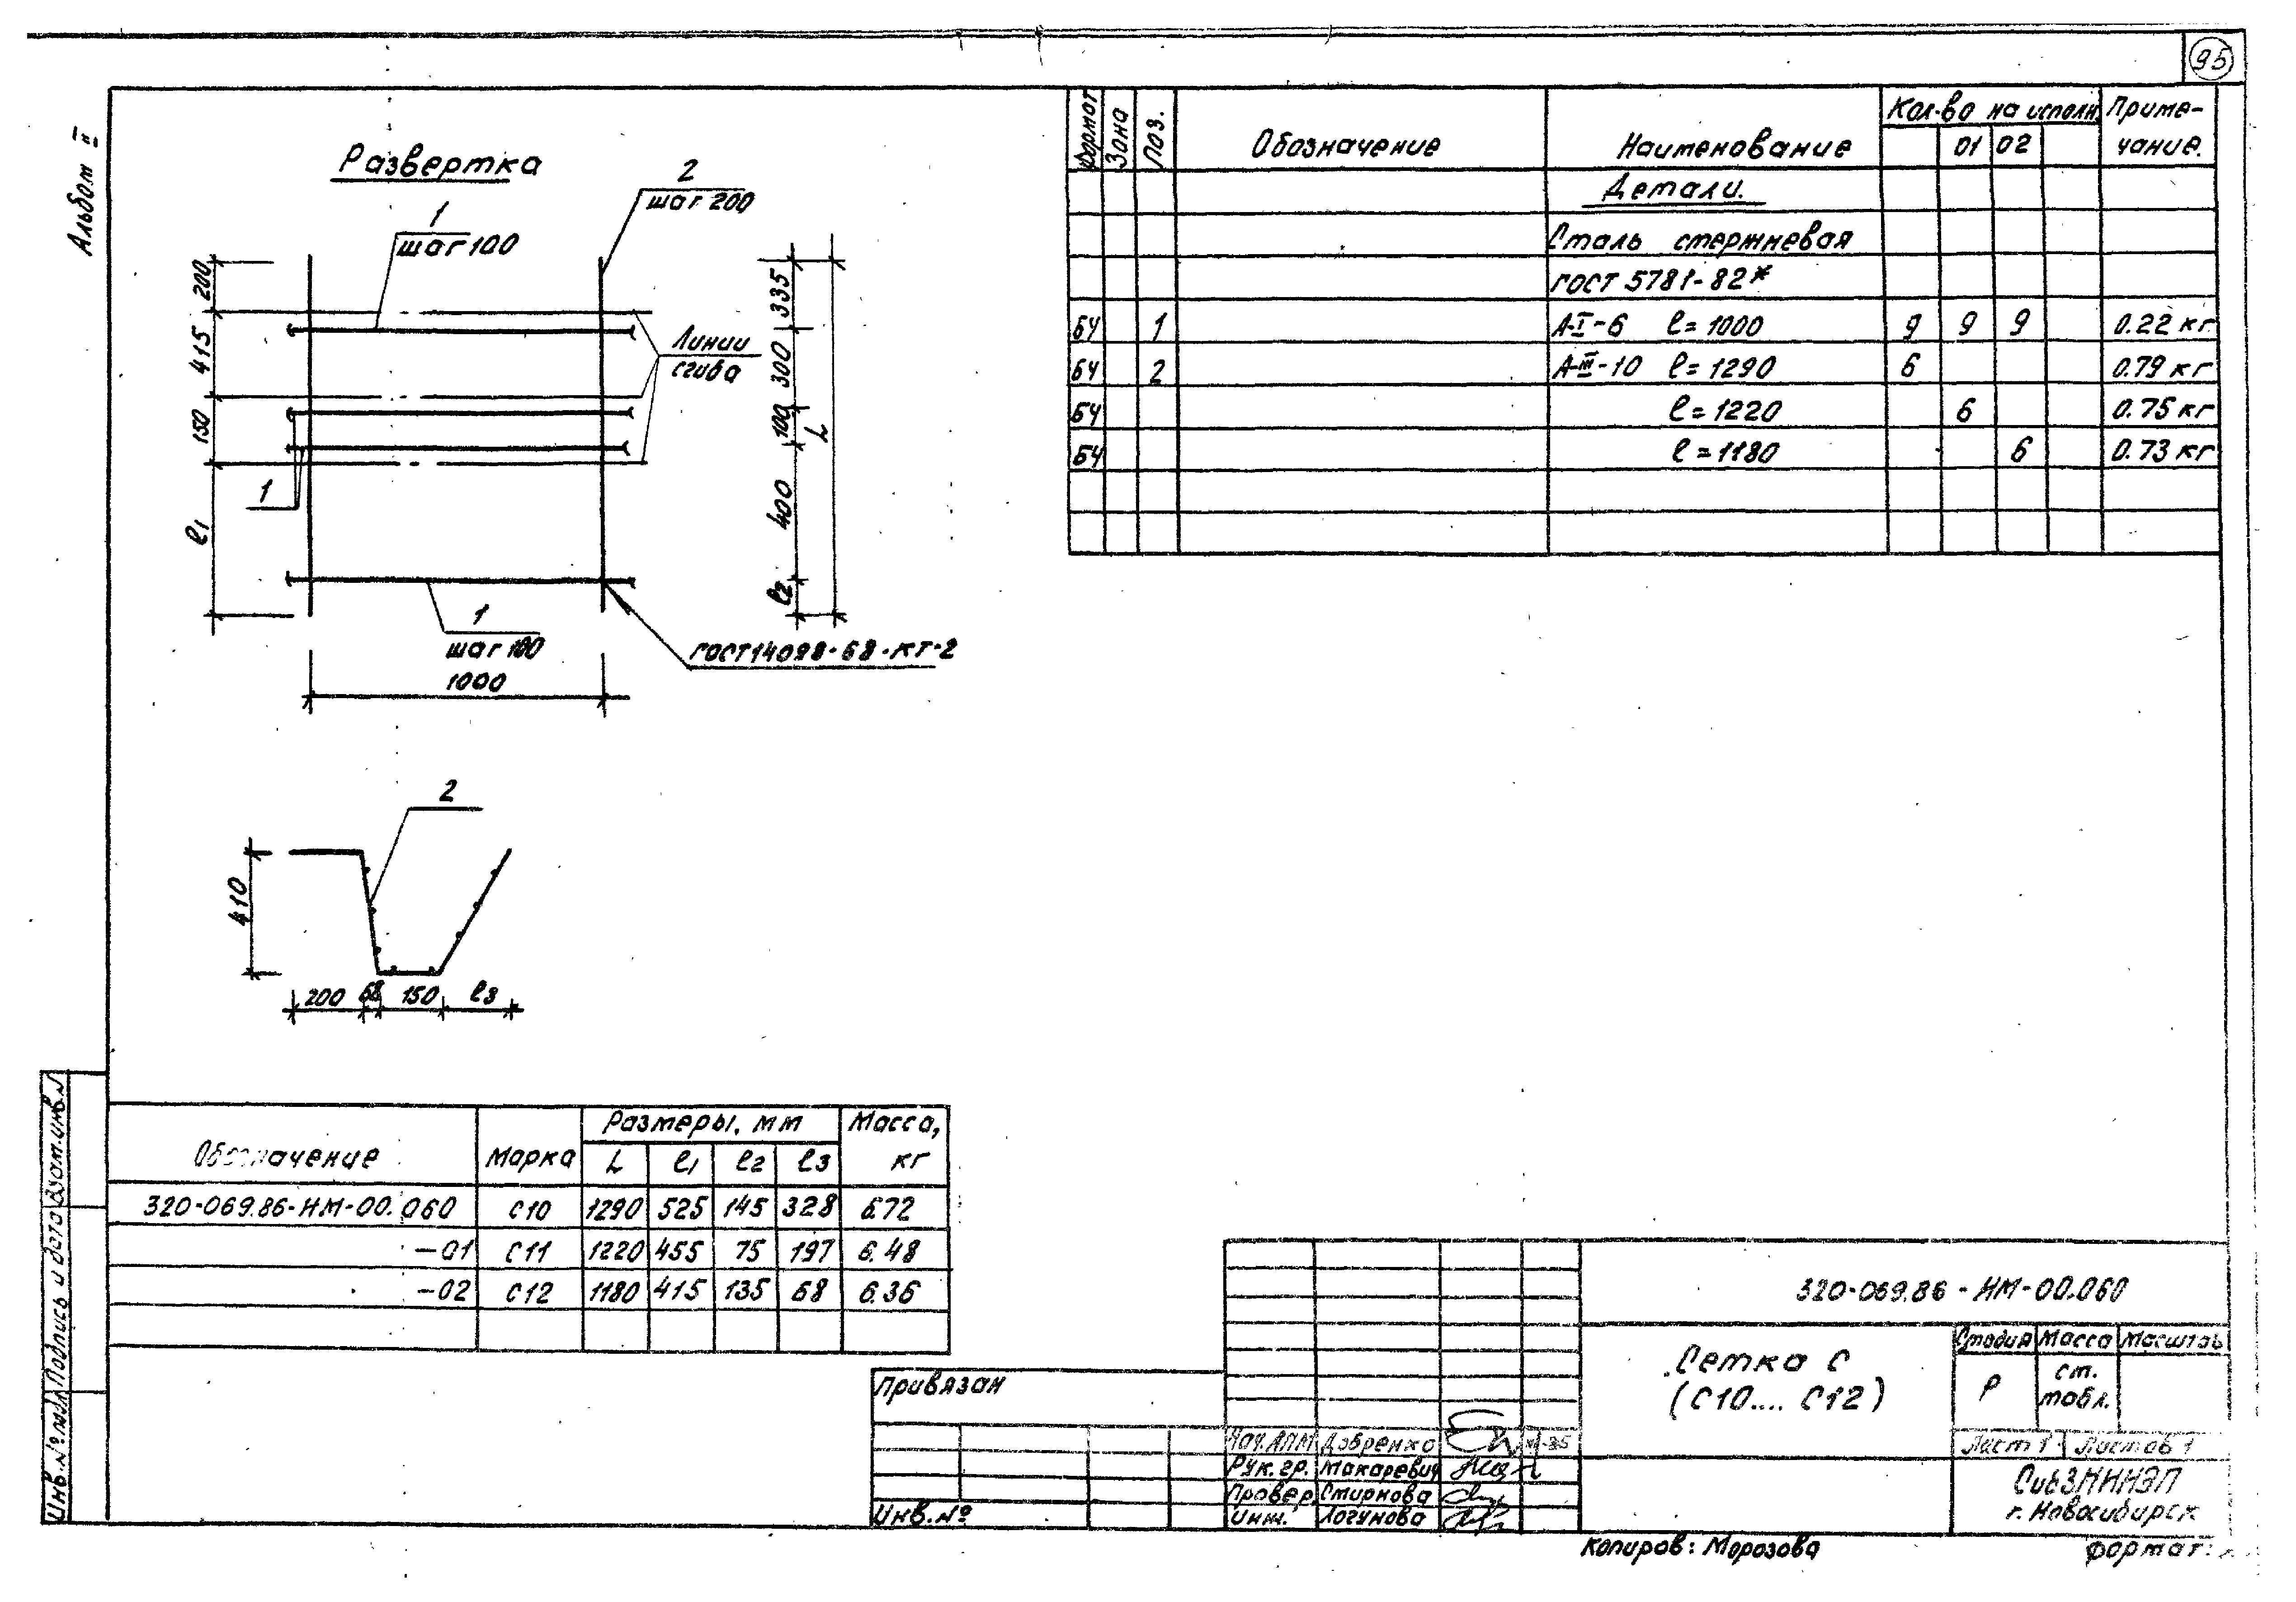 95
Альбом II
Развертка
1
шаг 100
2
шаг 200
200
415
150
l1
335
300
100
400
l2
L
Линии
сгиба
1
1
шаг 100
ГОСТ 14098-68-КТ-2
1000
2
410
200 68 150 l3
Формат Зона Поз. Обозначение Наименование Кол-во на исполн. Приме-
01 02 чание.
Детали.
Сталь стержневая
ГОСТ 5781-82*
БЧ 1 А-I-6 l=1000 9 9 9 0.22 кг
БЧ 2 А-III-10 l=1290 6 0.79 кг
БЧ l=1220 6 0.75 кг
БЧ l=1180 6 0.73 кг
Обозначение Марка Размеры, мм Масса,
L l1 l2 l3 кг
320-069.86-НМ-00.060 С10 1290 525 145 328 6.72
-01 С11 1220 455 75 197 6.48
-02 С12 1180 415 135 68 6.36
Инв. № подл. Подпись и дата Взам. инв. №
Привязан
Инв. №
320-069.86-НМ-00.060
Сетка С
(С10.... С12)
Стадия Масса Масштаб
Р ст.
табл.
Лист 1 Листов 1
Нач. АПМ Довренко
Рук. гр. Макаревич
Провер. Смирнова
Инж. Логунова
СибЗНИИЭП
г. Новосибирск
Копиров: Морозова
Формат: